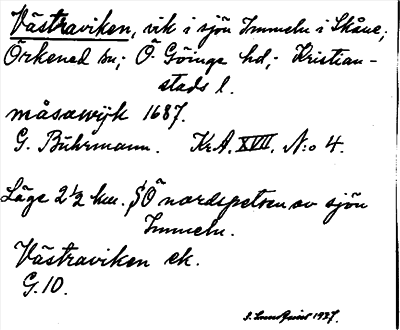 Västraviken, vik i sjön Immeln i Skåne;
Örkened sn; Ö. Göinge hd; Kristian-
stads l.
måsawijk 1687.
G. Buhrmann. KrA. XVII, N:o 4.
Läge 2 1/2 km. SÖ nordspetsen av sjön
Immeln.
Västraviken ek.
G.10.
1937.